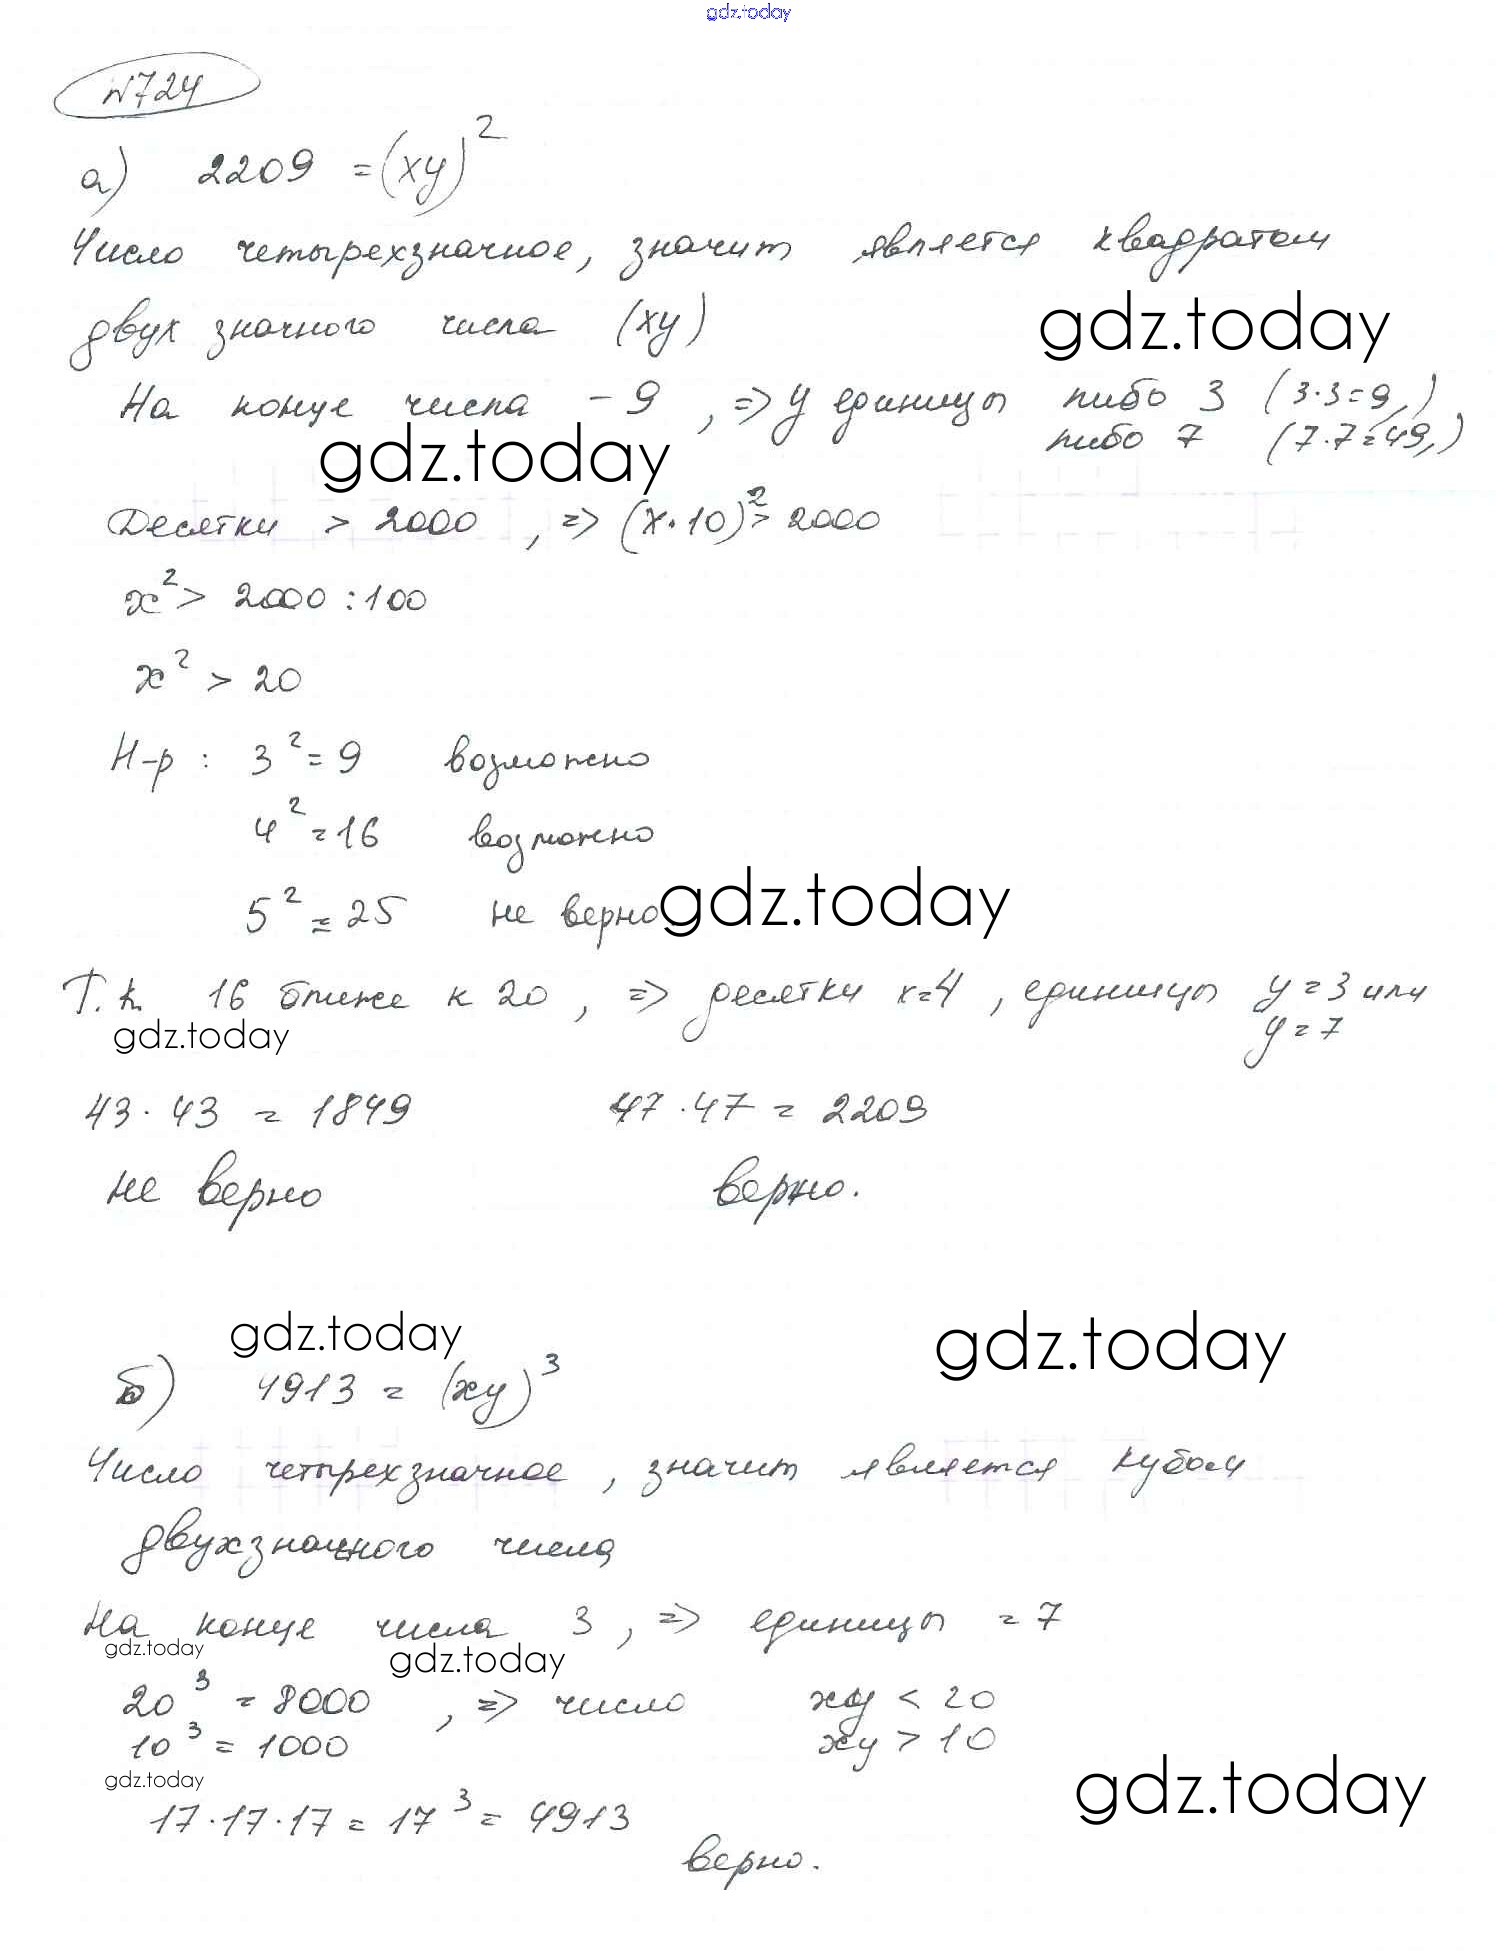 gdz.today
№724
а) 2209 = (xy)²
Число четырехзначное, значит является квадратом
двух значного числа (xy)
gdz.today
На конце числа - 9, => у единицы либо 3 (3·3=9,)
либо 7 (7·7=49,)
gdz.today
Десятки > 2000, => (x·10)² > 2000
x² > 2000 : 100
x² > 20
Н-р: 3² = 9 возможно
4² = 16 возможно
5² = 25 не верно
gdz.today
Т.к 16 ближе к 20, => десятки x=4, единицы y=3 или
y=7
gdz.today
43·43 = 1849 47·47 = 2209
не верно верно.
gdz.today
gdz.today
б) 4913 = (xy)³
Число четырехзначное, значит является кубом
двухзначного числа
На конце числа 3, => единицы = 7
gdz.today
gdz.today
20³ = 8000, => число xy < 20
10³ = 1000 xy > 10
gdz.today
gdz.today
17·17·17 = 17³ = 4913
верно.